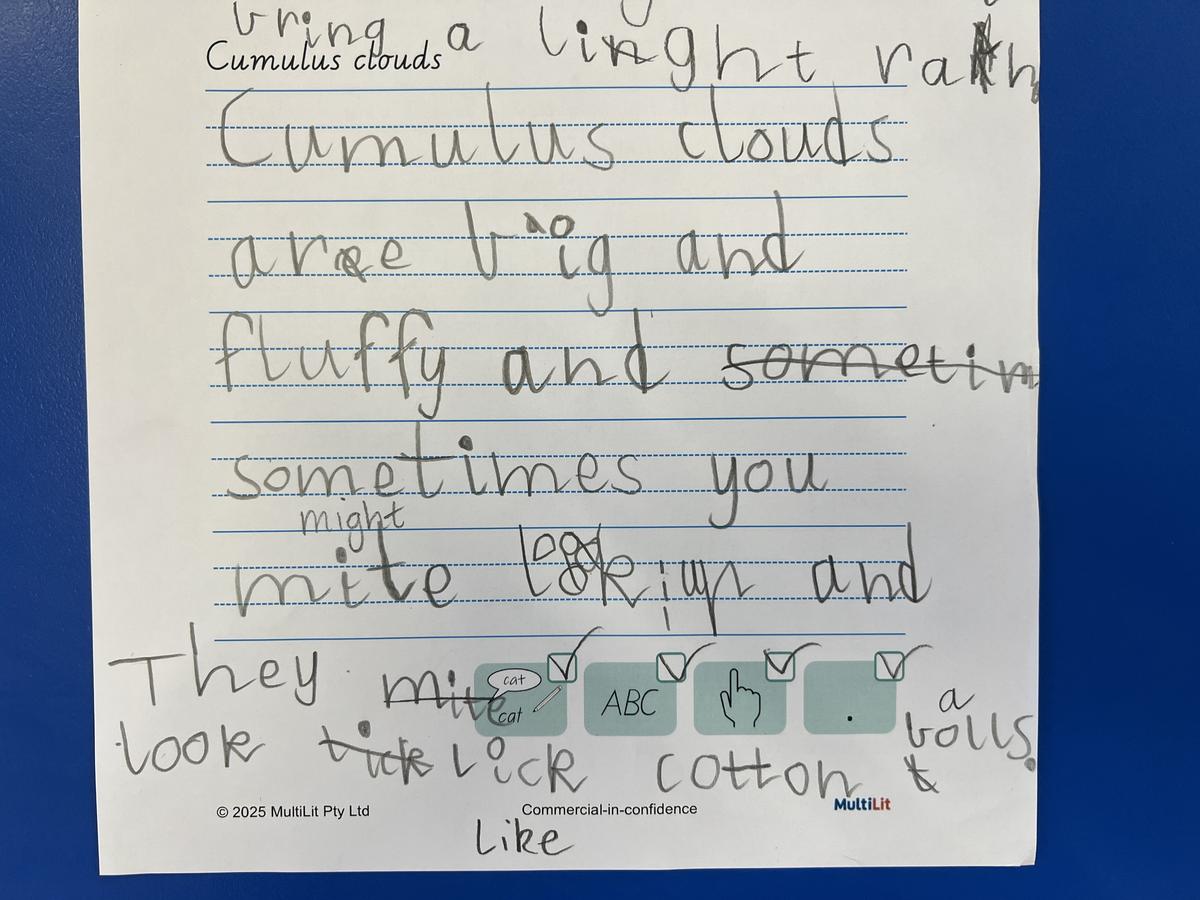 bring a linght
Cumulus clouds
Cumulus clouds
are big and
fluffy and sometim
sometimes you
might
mite look up and
They mite
cat
cat
ABC
.
a
look lick cotton balls.
© 2025 MultiLit Pty Ltd
Commercial-in-confidence
MultiLit
Like